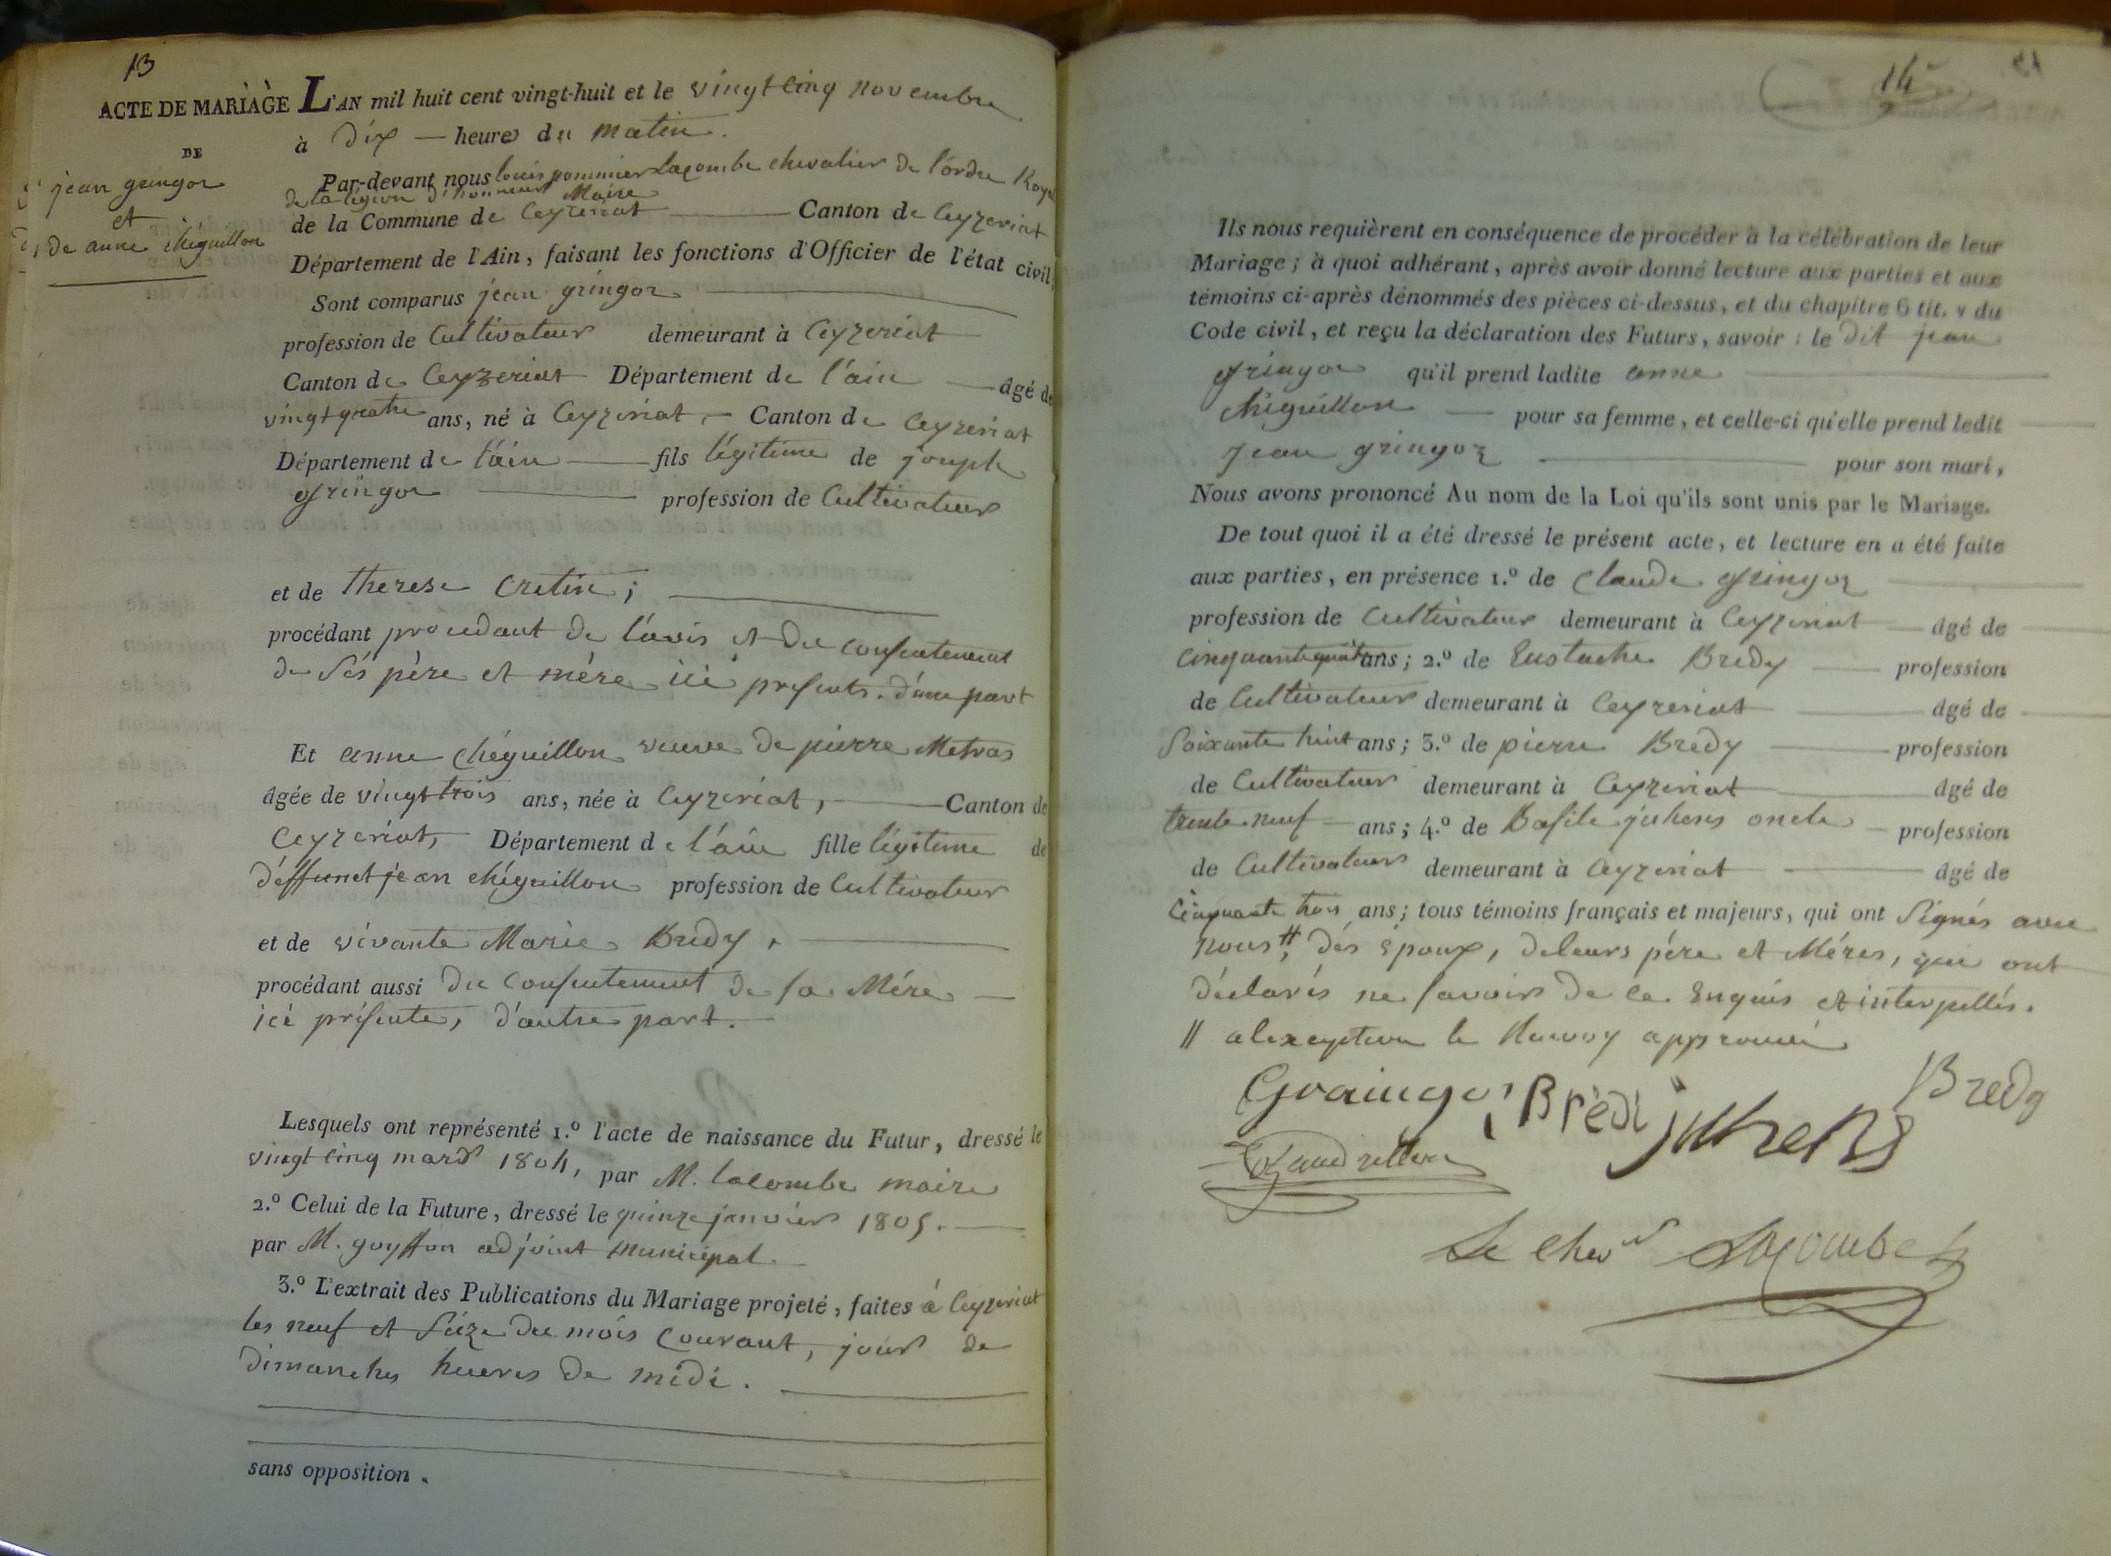 13
ACTE DE MARIAGE L'AN mil huit cent vingt-huit et le vingt cinq novembre
à dix — heures du matin.
DE
jean gringoz
et
de anne chéguillon
Par-devant nous louis pommier Lacombe chevalier de l'ordre Roya
de la légion d'honneur Maire
de la Commune de Ceyzeriat — Canton de Ceyzeriat
Département de l'Ain, faisant les fonctions d'Officier de l'état civil,
Sont comparus jean gringoz
profession de Cultivateur demeurant à Ceyzeriat
Canton de Ceyzeriat Département de l'ain — âgé de
vingt quatre ans, né à Ceyzeriat, — Canton de Ceyzeriat
Département de l'ain — fils légitime de joseph
gringoz — profession de Cultivateur
et de therese Cretin;
procédant procedant de l'avis et du consentement
de sés père et mère ici presents. d'une part
Et anne chéguillon veuve de pierre Metras
âgée de vingt trois ans, née à Ceyzeriat, — Canton de
Ceyzeriat, Département de l'ain fille légitime de
déffunct jean chéguillon profession de Cultivateur
et de vivante Marie Bredy,
procédant aussi du consentement de sa Mére —
ici présente, d'autre part.
Lesquels ont représenté 1.º l'acte de naissance du Futur, dressé le
vingt cinq mars 1804, par M. lacombe maire
2.º Celui de la Future, dressé le quinze janvier 1805. —
par M. goyffon adjoint municipal.
3.º L'extrait des Publications du Mariage projeté, faites à Ceyzeriat
les neuf et Seize du mois Courant, jours de
dimanches heures de midi.
sans opposition.
14
Ils nous requièrent en conséquence de procéder à la célébration de leur
Mariage; à quoi adhérant, après avoir donné lecture aux parties et aux
témoins ci-après dénommés des pièces ci-dessus, et du chapitre 6 tit. v du
Code civil, et reçu la déclaration des Futurs, savoir: le dit jean
gringoz qu'il prend ladite anne
chéguillon — pour sa femme, et celle-ci qu'elle prend ledit
jean gringoz — pour son mari,
Nous avons prononcé Au nom de la Loi qu'ils sont unis par le Mariage.
De tout quoi il a été dressé le présent acte, et lecture en a été faite
aux parties, en présence 1.º de Claude gringoz
profession de Cultivateur demeurant à Ceyzeriat — âgé de
Cinquante quatre ans; 2.º de Eustache Bredy — profession
de Cultivateur demeurant à Ceyzeriat — âgé de
Soixante huit ans; 3.º de pierre Bredy — profession
de Cultivateur demeurant à Ceyzeriat — âgé de
trente neuf — ans; 4.º de Basile juhens oncle — profession
de Cultivateur demeurant à Ceyzeriat — âgé de
Cinquante trois ans; tous témoins français et majeurs, qui ont Signés avec
nous, // dés époux, de leurs pére et Méres, qui ont
déclarés ne savoir de ce Enquis et interpellés.
// a lexception le Renvoy approuvé
Graingo Brèdi juhens Bredy
Le chev Lacombe